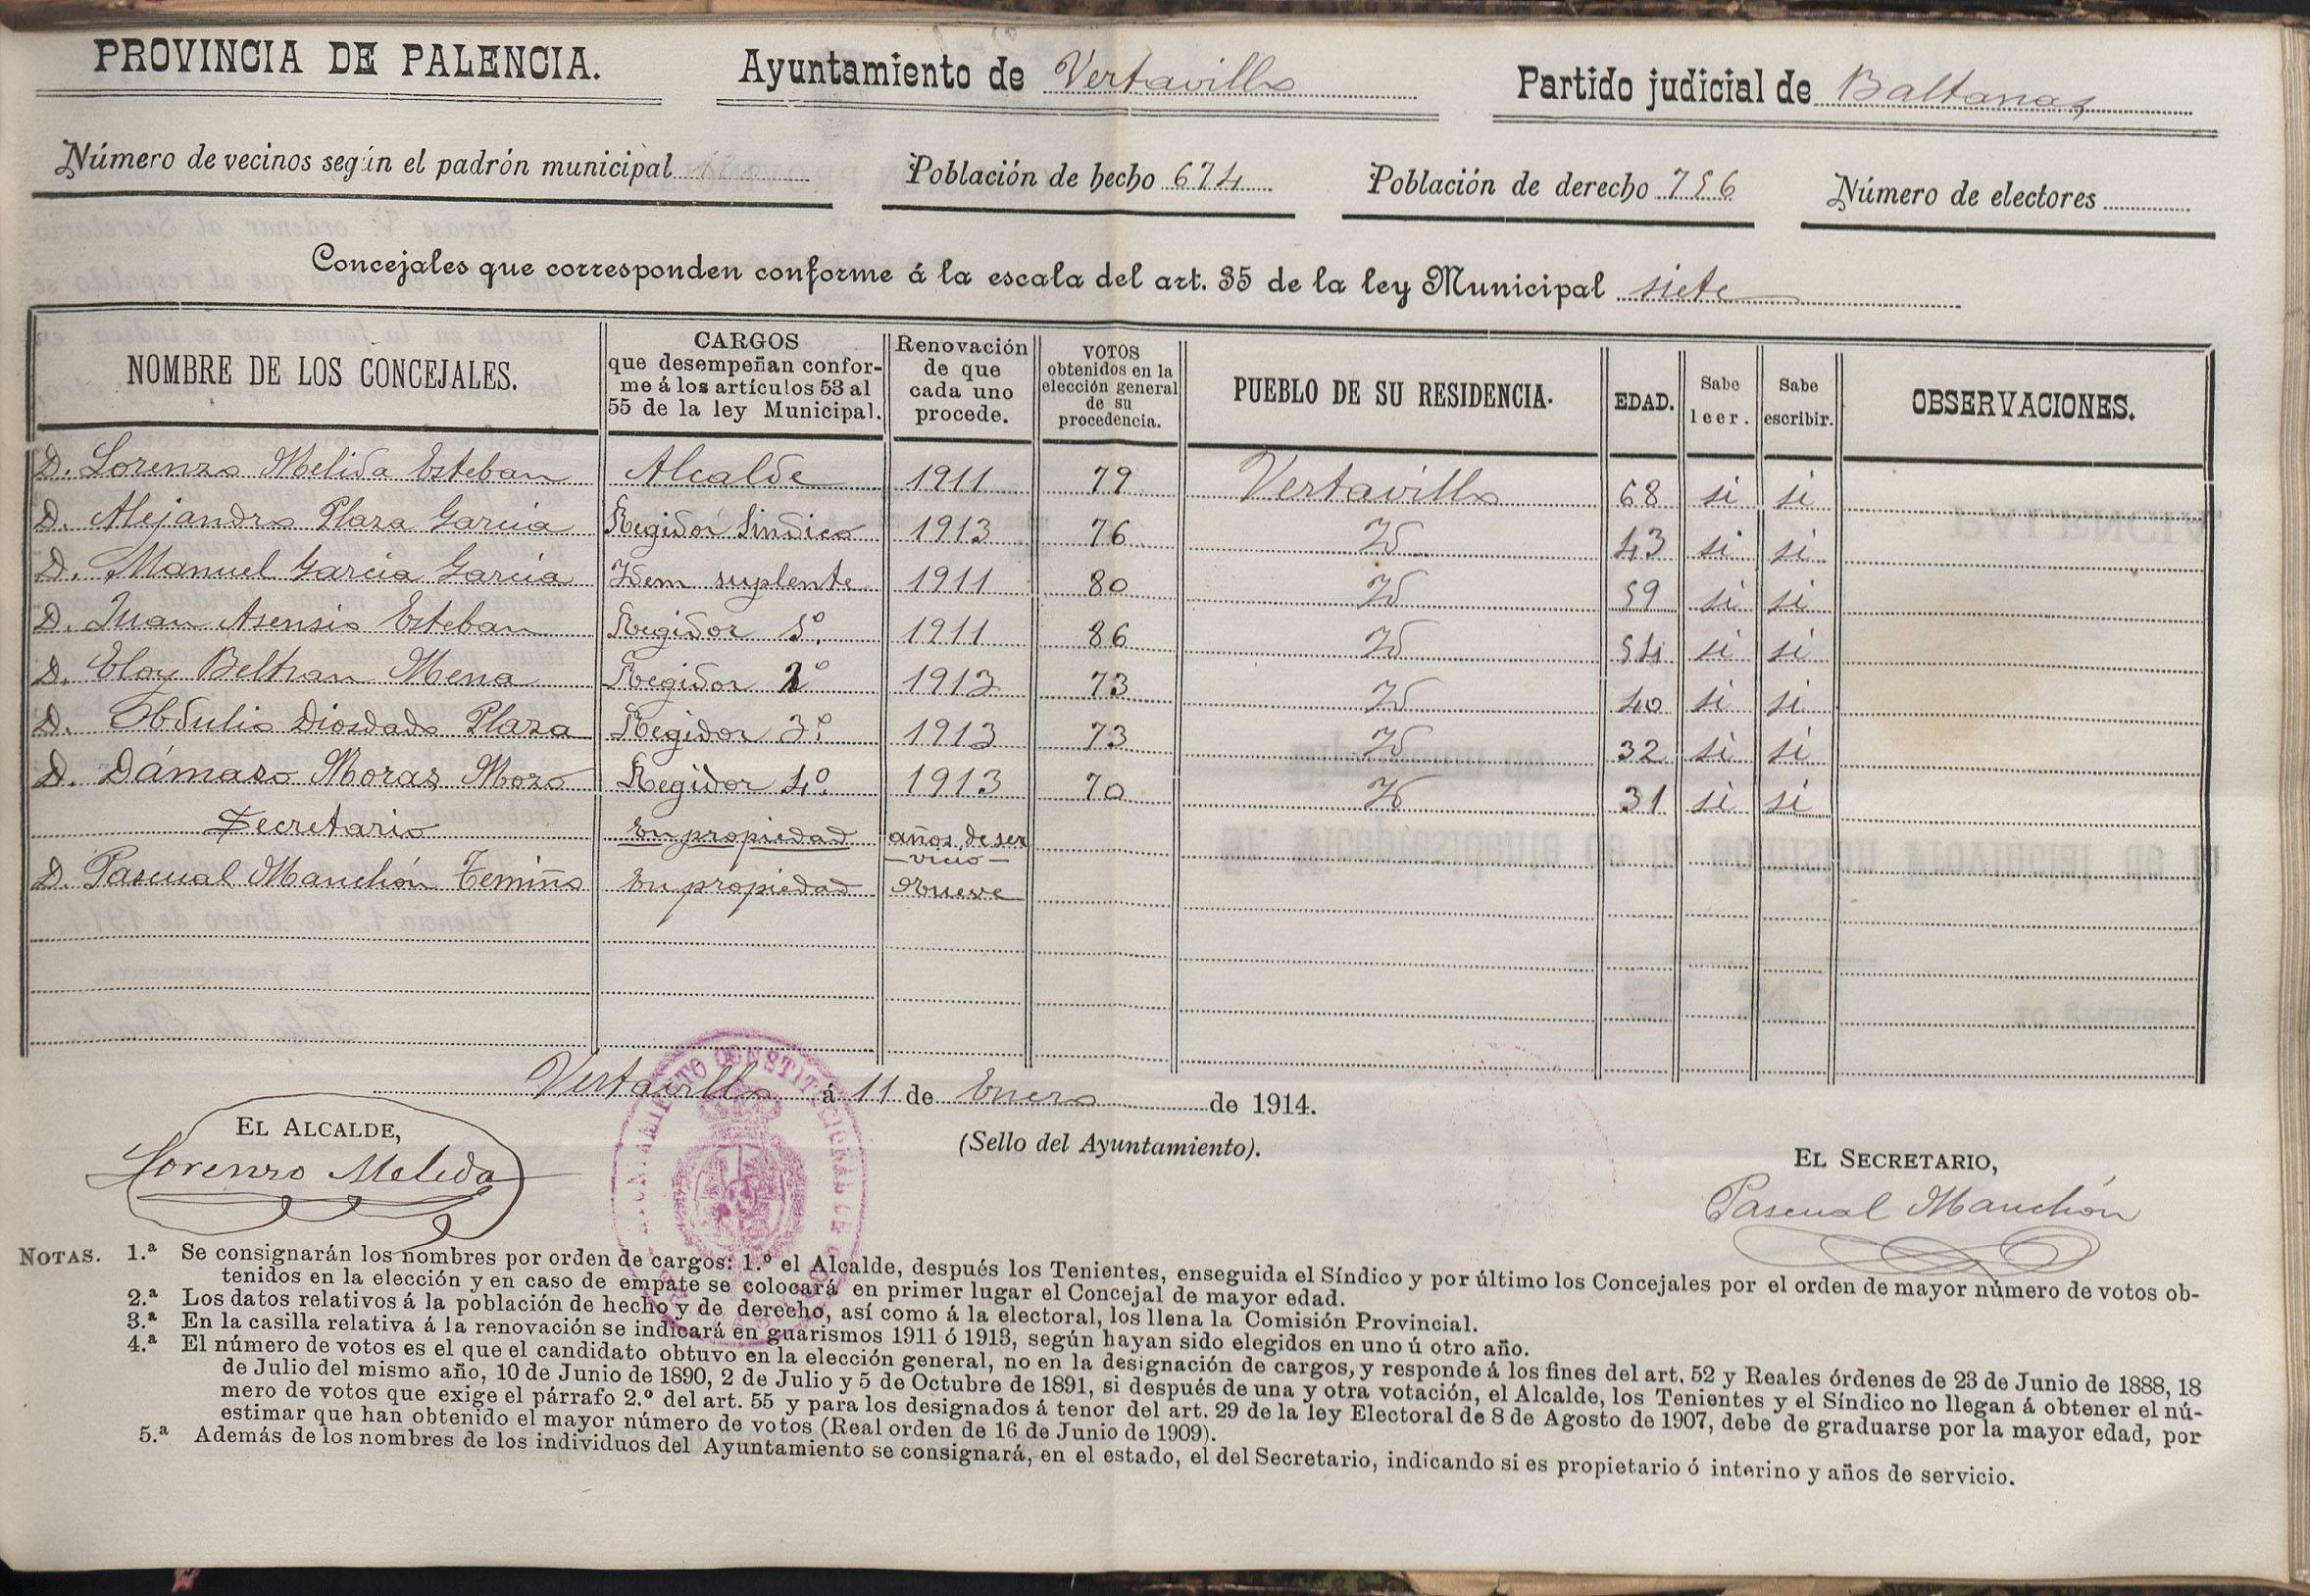 PROVINCIA DE PALENCIA. Ayuntamiento de Vertavillo Partido judicial de Baltanas
Número de vecinos según el padrón municipal Población de hecho 674 Población de derecho 756 Número de electores
Concejales que corresponden conforme á la escala del art. 35 de la ley Municipal siete
NOMBRE DE LOS CONCEJALES. CARGOS que desempeñan conforme á los artículos 53 al 55 de la ley Municipal. Renovación de que cada uno procede. VOTOS obtenidos en la elección general de su procedencia. PUEBLO DE SU RESIDENCIA. EDAD. Sabe leer. Sabe escribir. OBSERVACIONES.
D. Lorenzo Melida Esteban Alcalde 1911 79 Vertavillo 68 si si
D. Alejandro Plaza Garcia Regidor Sindico 1913 76 Id 43 si si
D. Manuel Garcia Garcia Idem suplente 1911 80 Id 59 si si
D. Juan Asensio Esteban Regidor 1º. 1911 86 Id 54 si si
D. Eloy Beltran Mena Regidor 2º 1913 73 Id 40 si si
D. Obdulio Diosdado Plaza Regidor 3º. 1913 73 Id 32 si si
D. Dámaso Moras Mozo Regidor 4º. 1913 70 Id 31 si si
Secretario En propiedad años de servicio
D. Pascual Manchón Temiño En propiedad Nueve
Vertavillo á 11 de Enero de 1914.
EL ALCALDE,
(Sello del Ayuntamiento).
EL SECRETARIO,
Lorenzo Melida
Pascual Manchón
NOTAS. 1.ª Se consignarán los nombres por orden de cargos: 1.º el Alcalde, después los Tenientes, enseguida el Síndico y por último los Concejales por el orden de mayor número de votos ob-
tenidos en la elección y en caso de empate se colocará en primer lugar el Concejal de mayor edad.
2.ª Los datos relativos á la población de hecho y de derecho, así como á la electoral, los llena la Comisión Provincial.
3.ª En la casilla relativa á la renovación se indicará en guarismos 1911 ó 1913, según hayan sido elegidos en uno ú otro año.
4.ª El número de votos es el que el candidato obtuvo en la elección general, no en la designación de cargos, y responde á los fines del art. 52 y Reales órdenes de 23 de Junio de 1888, 18
de Julio del mismo año, 10 de Junio de 1890, 2 de Julio y 5 de Octubre de 1891, si después de una y otra votación, el Alcalde, los Tenientes y el Síndico no llegan á obtener el nú-
mero de votos que exige el párrafo 2.º del art. 55 y para los designados á tenor del art. 29 de la ley Electoral de 8 de Agosto de 1907, debe de graduarse por la mayor edad, por
estimar que han obtenido el mayor número de votos (Real orden de 16 de Junio de 1909).
5.ª Además de los nombres de los individuos del Ayuntamiento se consignará, en el estado, el del Secretario, indicando si es propietario ó interino y años de servicio.